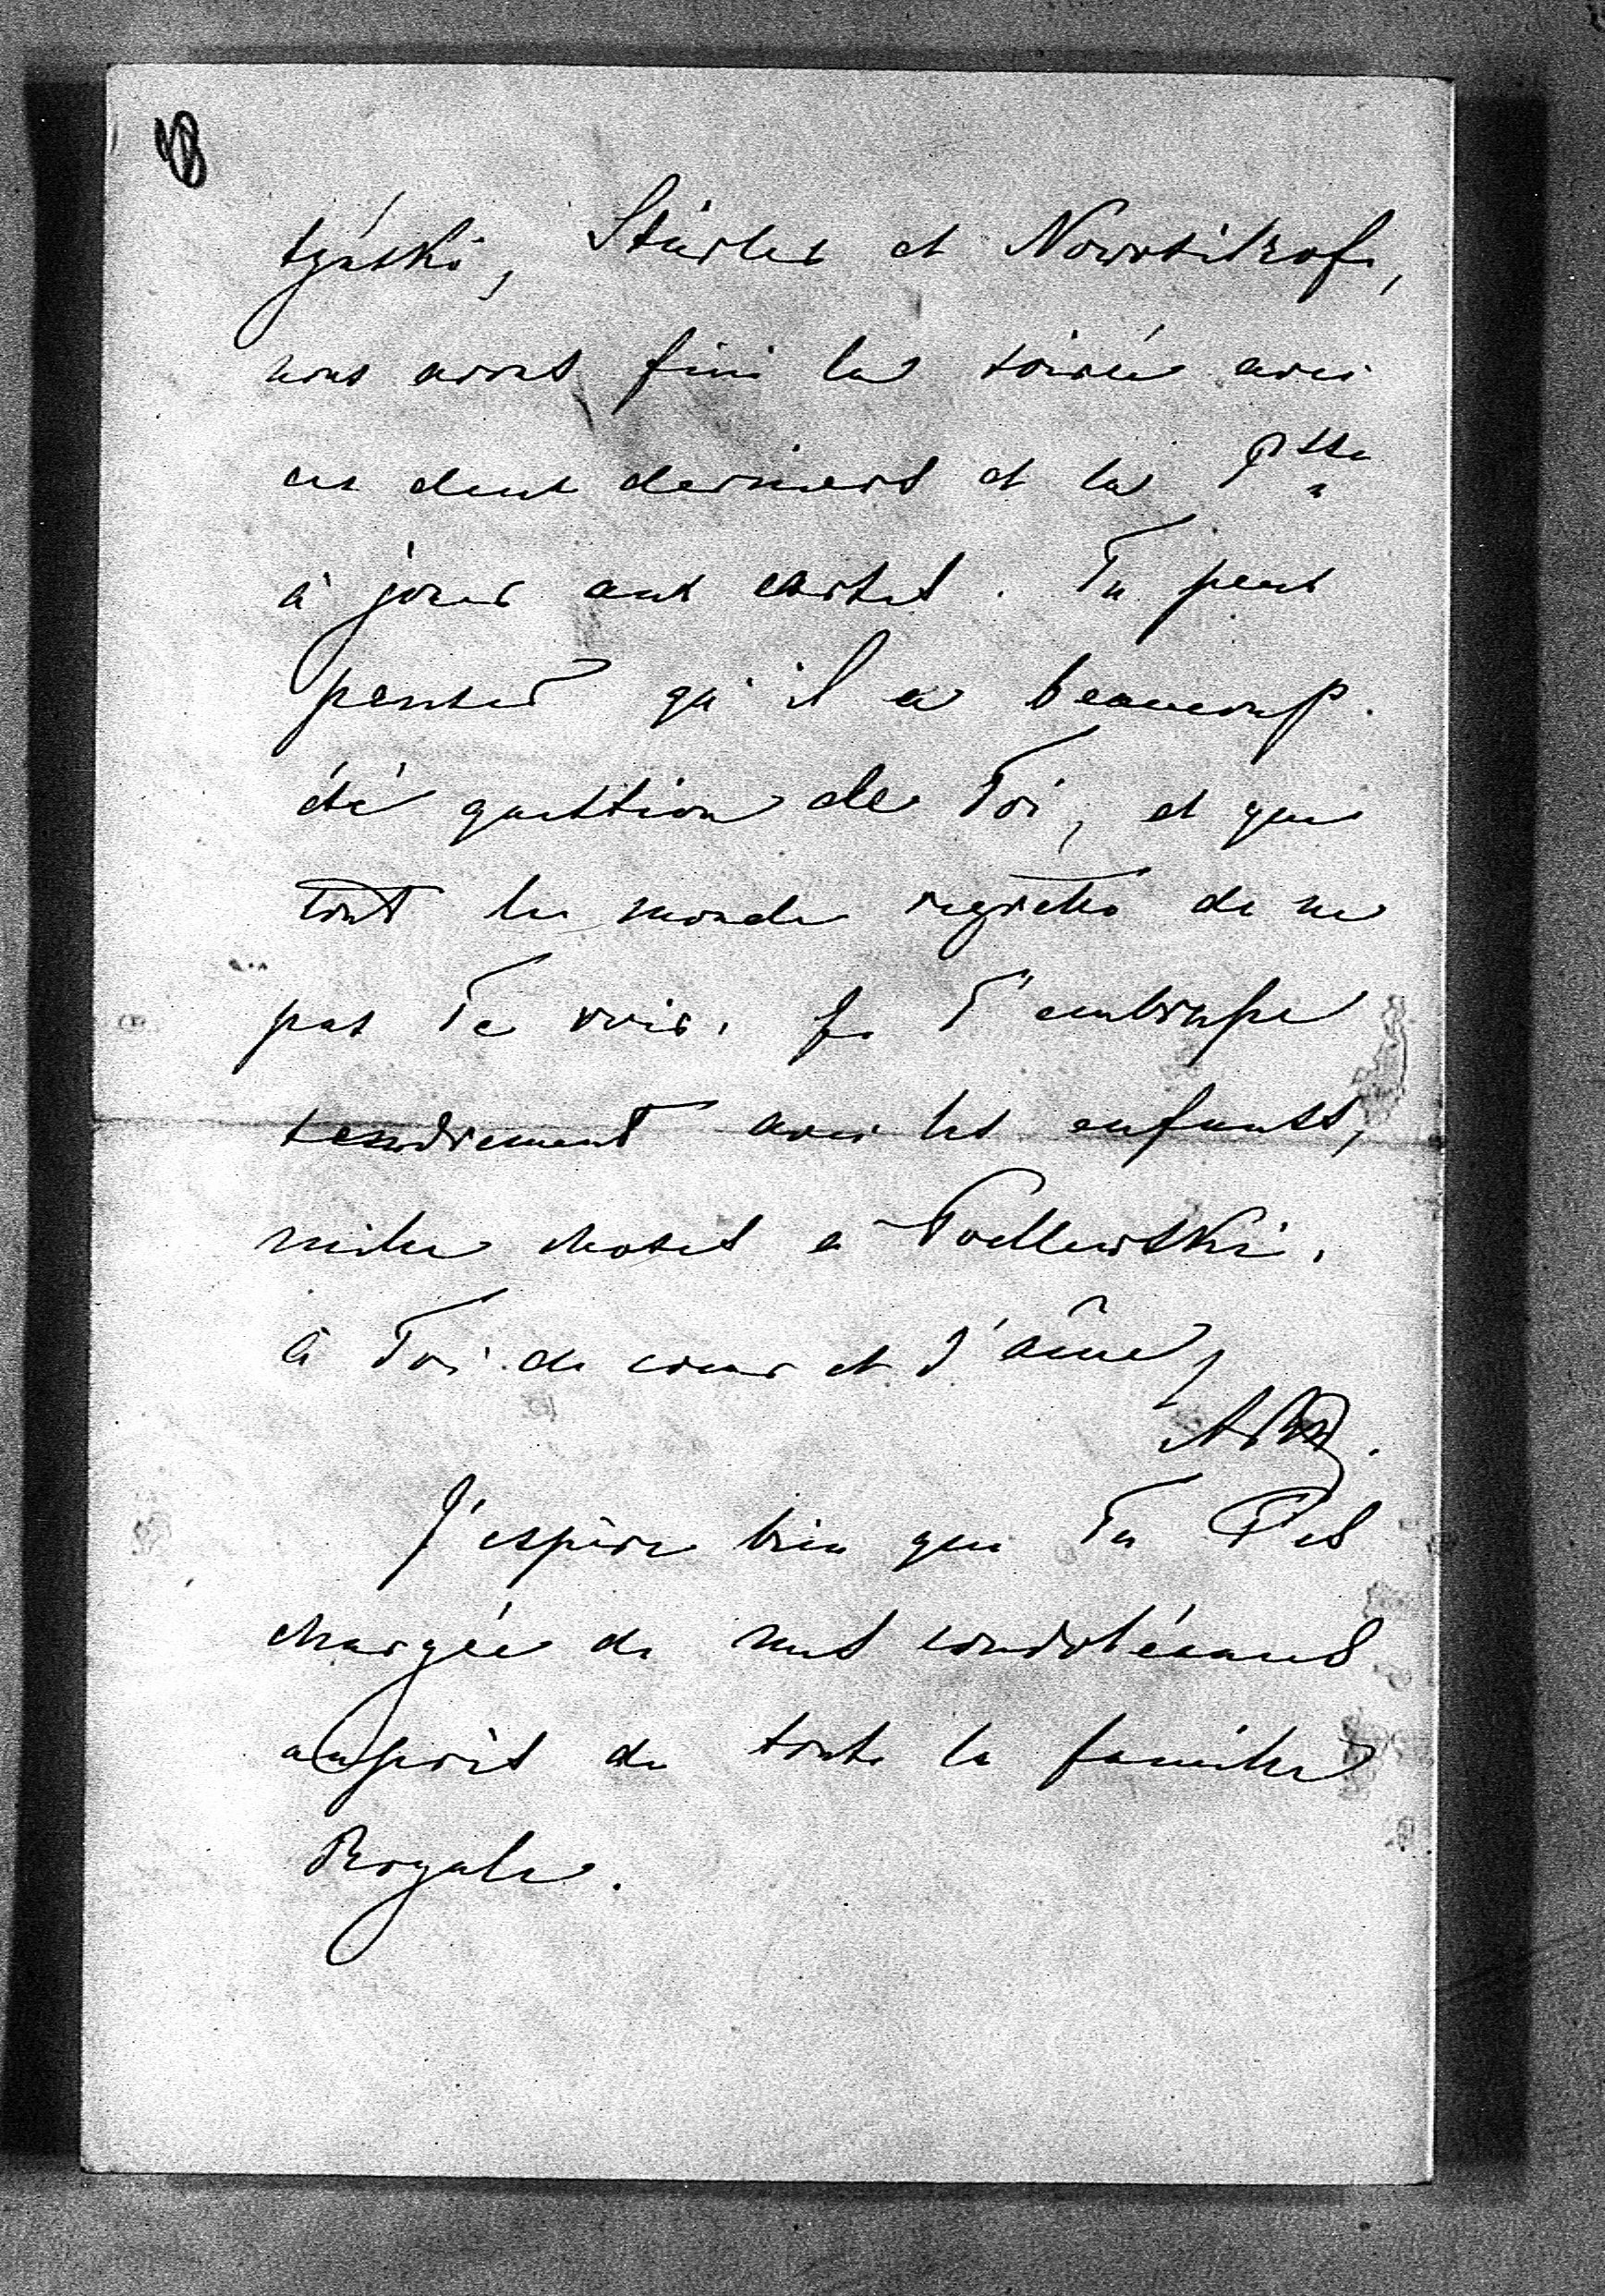 tynski, Stürler et Nowosilzof,
nous avons fini la soirée avec
ces deux derniers et la Psse
à jouer aux cartes. Tu peux
penser qu'il a beaucoup
été question de Toi, et que
tout le monde regrette de ne
pas Te voir. Je T'embrasse
tendrement avec les enfants,
mille choses à Podlewski.
à Toi de cœur et d'âme,
J'espère bien que Tu T'es
chargée de mes condoléances
auprès de toute la famille
Royale.